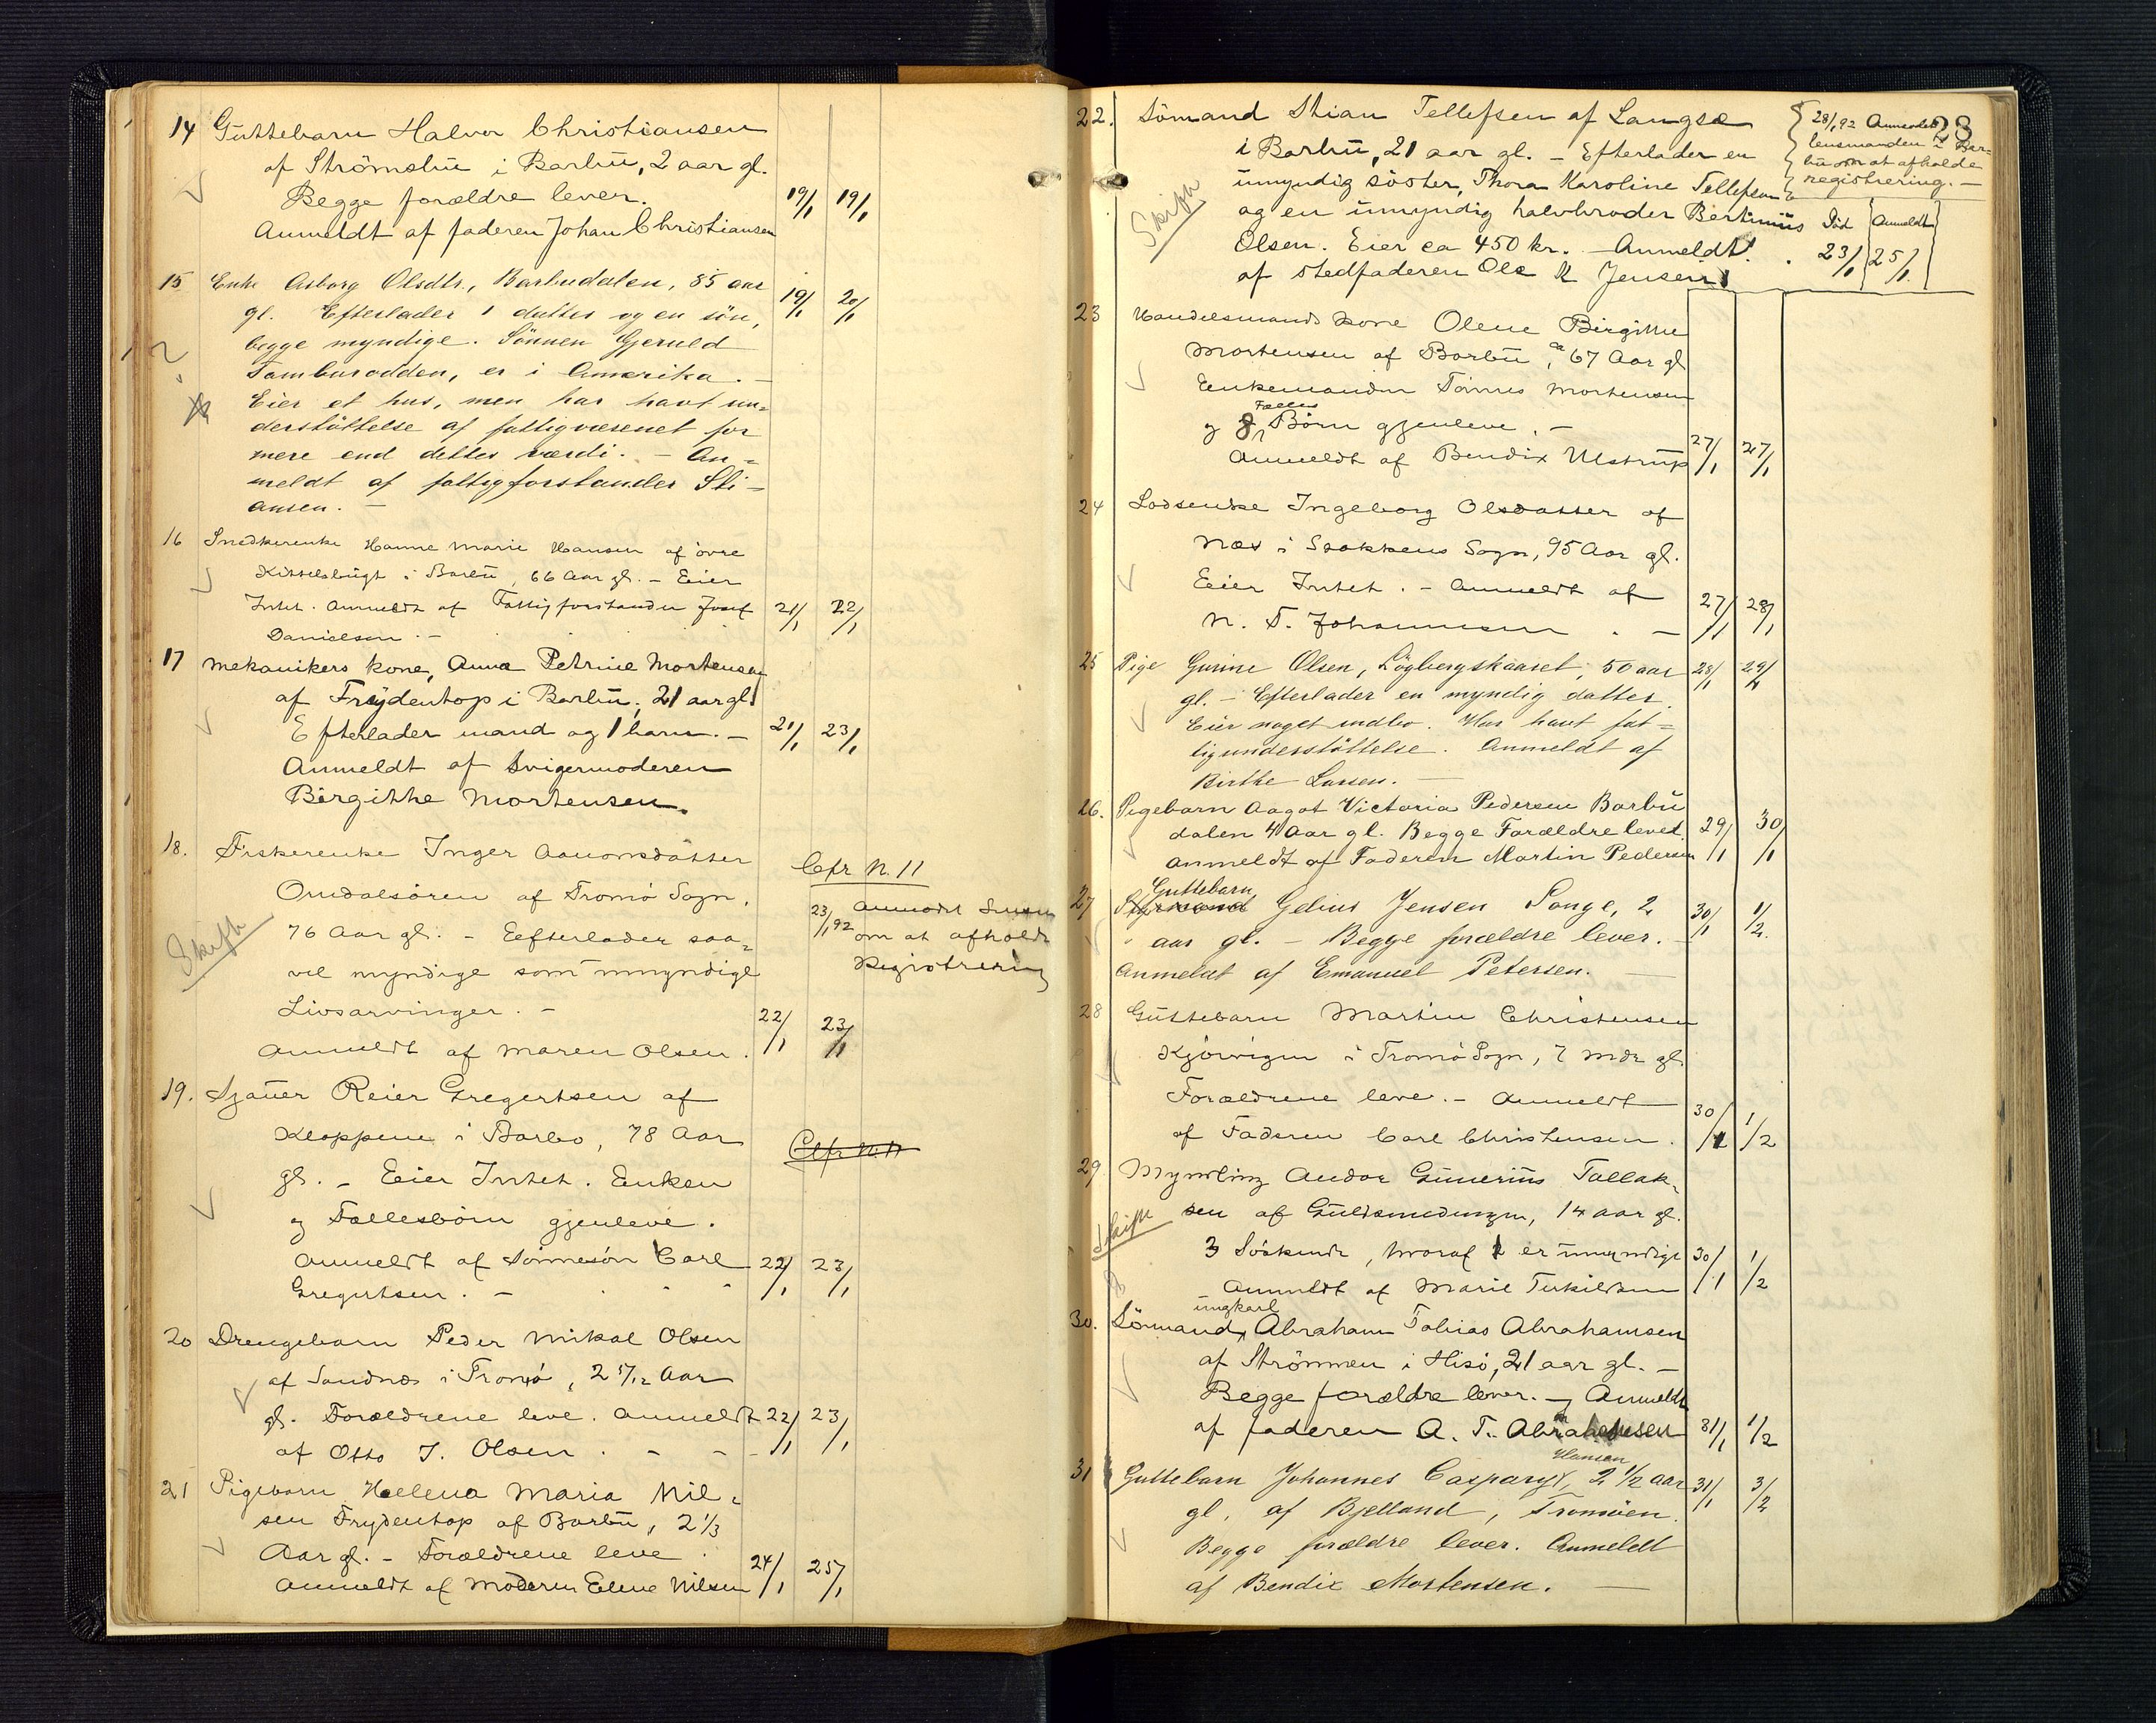 14 Guttebarn Halvor Christiansen
af Strömsbu i Barbu, 2 aar gl.
Begge forældre lever. 19/1 19/1
Anmeldt af faderen Johan Christiansen
15 Enke Asborg Olsdtr., Barbudalen, 85 aar 19/1 20/1
gl. Efterlader 1 datter og en sön,
begge myndige. Sönnen Gjeruld
?
Tamburodden, er i Amerika. —
Eier et hus, men har havt un-
derstöttelse af fattigvæsenet for
mere end dettes værdi. — An-
meldt af fattigforstander Sti-
ansen. —
16 Snedkerenke Hanne Marie Hansen af övre
Kittelsbugt i Barbu, 66 Aar gl. – Eier
Intet. Anmeldt af Fattigforstander Josef 21/1 22/1
Danielsen. –
17 Mekanikers kone, Anna Petrine Mortensen
af Frydentop i Barbu, 21 aar gl.
Efterlader mand og 1 barn. – 21/1 23/1
Anmeldt af Svigermoderen
Birgitthe Mortensen.
18. Fiskerenke Inger Aanonsdatter
Cfr N. 11
Omdalsören af Tromö Sogn,
23/1 92 Anmodet
76 Aar gl. – Eefterlader saa-
om at afholde
Skifte
vel myndige som umyndige
Registrering
Livsarvinger. – 22/1 23/1
Anmeldt af Maren Olsen.
19. Sjauer Reier Gregertsen af
Kloppene i Barbo, 78 Aar
Cfr N. 11
gl. – Eier Intet. Enken
og Fællesbörn gjenleve.
Anmeldt af Sönnesön Carl 22/1 23/1
Gregertsen. –
20 Drengebarn Peder Mikal Olsen
af Sandnæs i Tromö, 2 5/12 Aar
gl. Forældrene leve. Anmeldt 22/1 23/1
af Otto J. Olsen.
21 Pigebarn Helena Maria Nil-
sen Frydentop af Barbu, 2 1/3
Aar gl. – Forældrene leve.
Anmeldt af Moderen Elene Nilsen 24/1 25/1
28
22. Sömand Stian Tellefsen af Langsæ
28/1 92 Anmodet
lensmanden i Bar-
bu om at afholde
registrering. —
i Barbu, 21 aar gl. – Efterlader en
umyndig söster, Thora Karoline Tellefsen
Skifte
og en umyndig halvbroder Bertinius Död Anmeldt
Olsen. Eier ca 450 kr. – Anmeldt 23/1 25/1
af stedfaderen Ole K Jensen
23 Handelsmands Kone Olene Birgitte
Mortensen af Barbu, ca 67 Aar gl
Enkemanden Tönnes Mortensen
og 8 Fælles Börn gjenleve. –
Anmeldt af Bendix Ulstrup 27/1 27/1
24 Lodsenke Ingeborg Olsdatter af
Næs i Stokkens Sogn, 95 Aar gl.
Eier Intet. – Anmeldt af
N. T. Johannesen. – 27/1 28/1
25 Pige Gurine Olsen, Lögbergskaaret, 50 aar 28/1 29/1
gl. – Efterlader en myndig datter.
Eier noget indbo. Har havt fat-
tigunderstöttelse. Anmeldt af
Birthe Larsen. —
26. Pigebarn Aagot Victoria Pedersen Barbu
dalen 4 Aar gl. Begge Forældre lever. 29/1 30/1
Anmeldt af Faderen Martin Pedersen
27 Guttebarn Gelius Jensen Songe, 2 30/1 1/2
aar gl. – Begge forældre lever. –
Anmeldt af Emanuel Petersen. —
28 Guttebarn Martin Christensen
Kjörvigen i Tromö Sogn, 7 Mdr gl.
Forældrene leve. – Anmeldt
af Faderen Carl Christensen. 30/1 1/2
29 Myndling Andor Gunerius Tallak-
sen af Guldsmedengen, 14 aar gl.
Skifte
3 Söskende, hvoraf 2 er umyndige 30/1 1/2
Anmeldt af Marie Terkildsen
30. Sömand ungkarl Abraham Tobias Abrahamsen
af Strömmen i Hisö, 21 aar gl. –
Begge forældre lever. – Anmeldt
af faderen A. T. Abrahamsen 31/1 1/2
31 Guttebarn Johannes Caspary Hansen, 2 1/2 aar 31/1 3/2
gl, af Bjelland, Tromöen.
Begge forældre lever. Anmeldt
af Bendix Mortensen. —